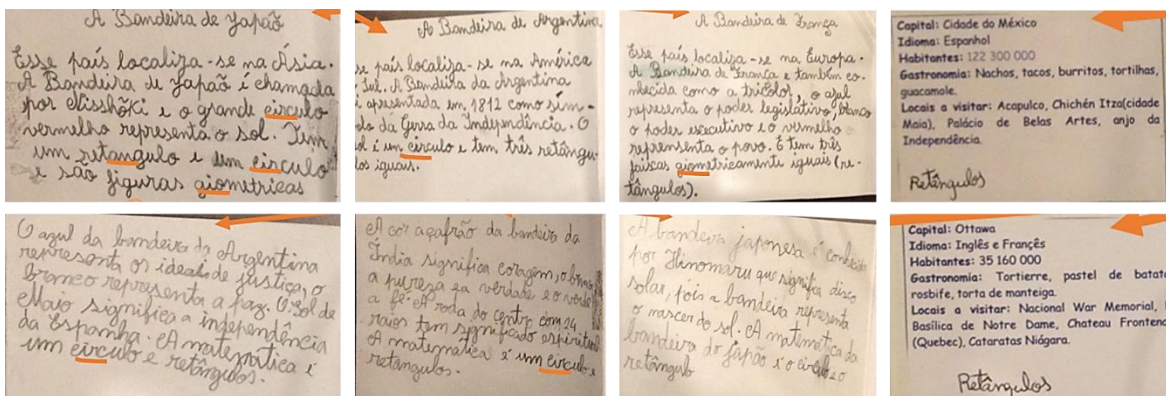 A Bandeira de Japão
Esse país localiza-se na Ásia.
A Bandeira de Japão é chamada
por Nisshōki e o grande circulo
vermelho representa o sol. Tem
um retangulo e um circulo
e são figuras giometricas
A Bandeira de Argentina
se país localiza-se na América
Sul. A Bandeira da Argentina
i apresentada em 1812 como sím-
da Gerra da Independência. O
ol é um circulo e tem três retângu-
los iguais.
A Bandeira de França
Esse país localiza-se na Europa.
A Bandeira de França e também co-
nhecida como a tricolor, e o azul
representa o poder legislativo, branco
o poder executivo e o vermelho
representa o povo. E tem três
faixas giometricamente iguais (re-
tângulos).
Capital: Cidade do México
Idioma: Espanhol
Habitantes: 122 300 000
Gastronomia: Nachos, tacos, burritos, tortilhas,
guacamole.
Locais a visitar: Acapulco, Chichén Itza(cidade
Maia), Palácio de Belas Artes, anjo da
Independência.
Retângulos
O azul da bandeira da Argentina
representa os ideais de justiça, o
branco representa a paz. O Sol de
Mayo significa a independência
da Espanha. A matemática é
um circulo e retângulos.
A cor açafrão da bandeira da
Índia significa coragem, o branco
a pureza e a verdade e o verde
a fé. A roda do centro com 24
raios tem significado espiritual
A matematica é um circulo e
retangulos.
A bandeira japonesa é conhecida
por Hinomaru que significa disco
solar, pois a bandeira representa
o nascer do sol. A matimática da
bandeira do japão é o circulo e o
retângulo
Capital: Ottawa
Idioma: Inglês e Françês
Habitantes: 35 160 000
Gastronomia: Tortierre, pastel de batata
rosbife, torta de manteiga.
Locais a visitar: Nacional War Memorial,
Basílica de Notre Dame, Chateau Frontenac
(Quebec), Cataratas Niágara.
Retângulos